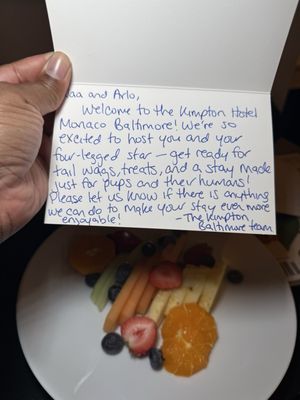 and Arlo,
Welcome to the Kimpton Hotel
Monaco Baltimore! We're so
excited to host you and your
four-legged star — get ready for
tail wags, treats, and a stay made
just for pups and their humans!
Please let us know if there is anything
we can do to make your stay even more
enjoyable!
-The Kimpton
Baltimore team